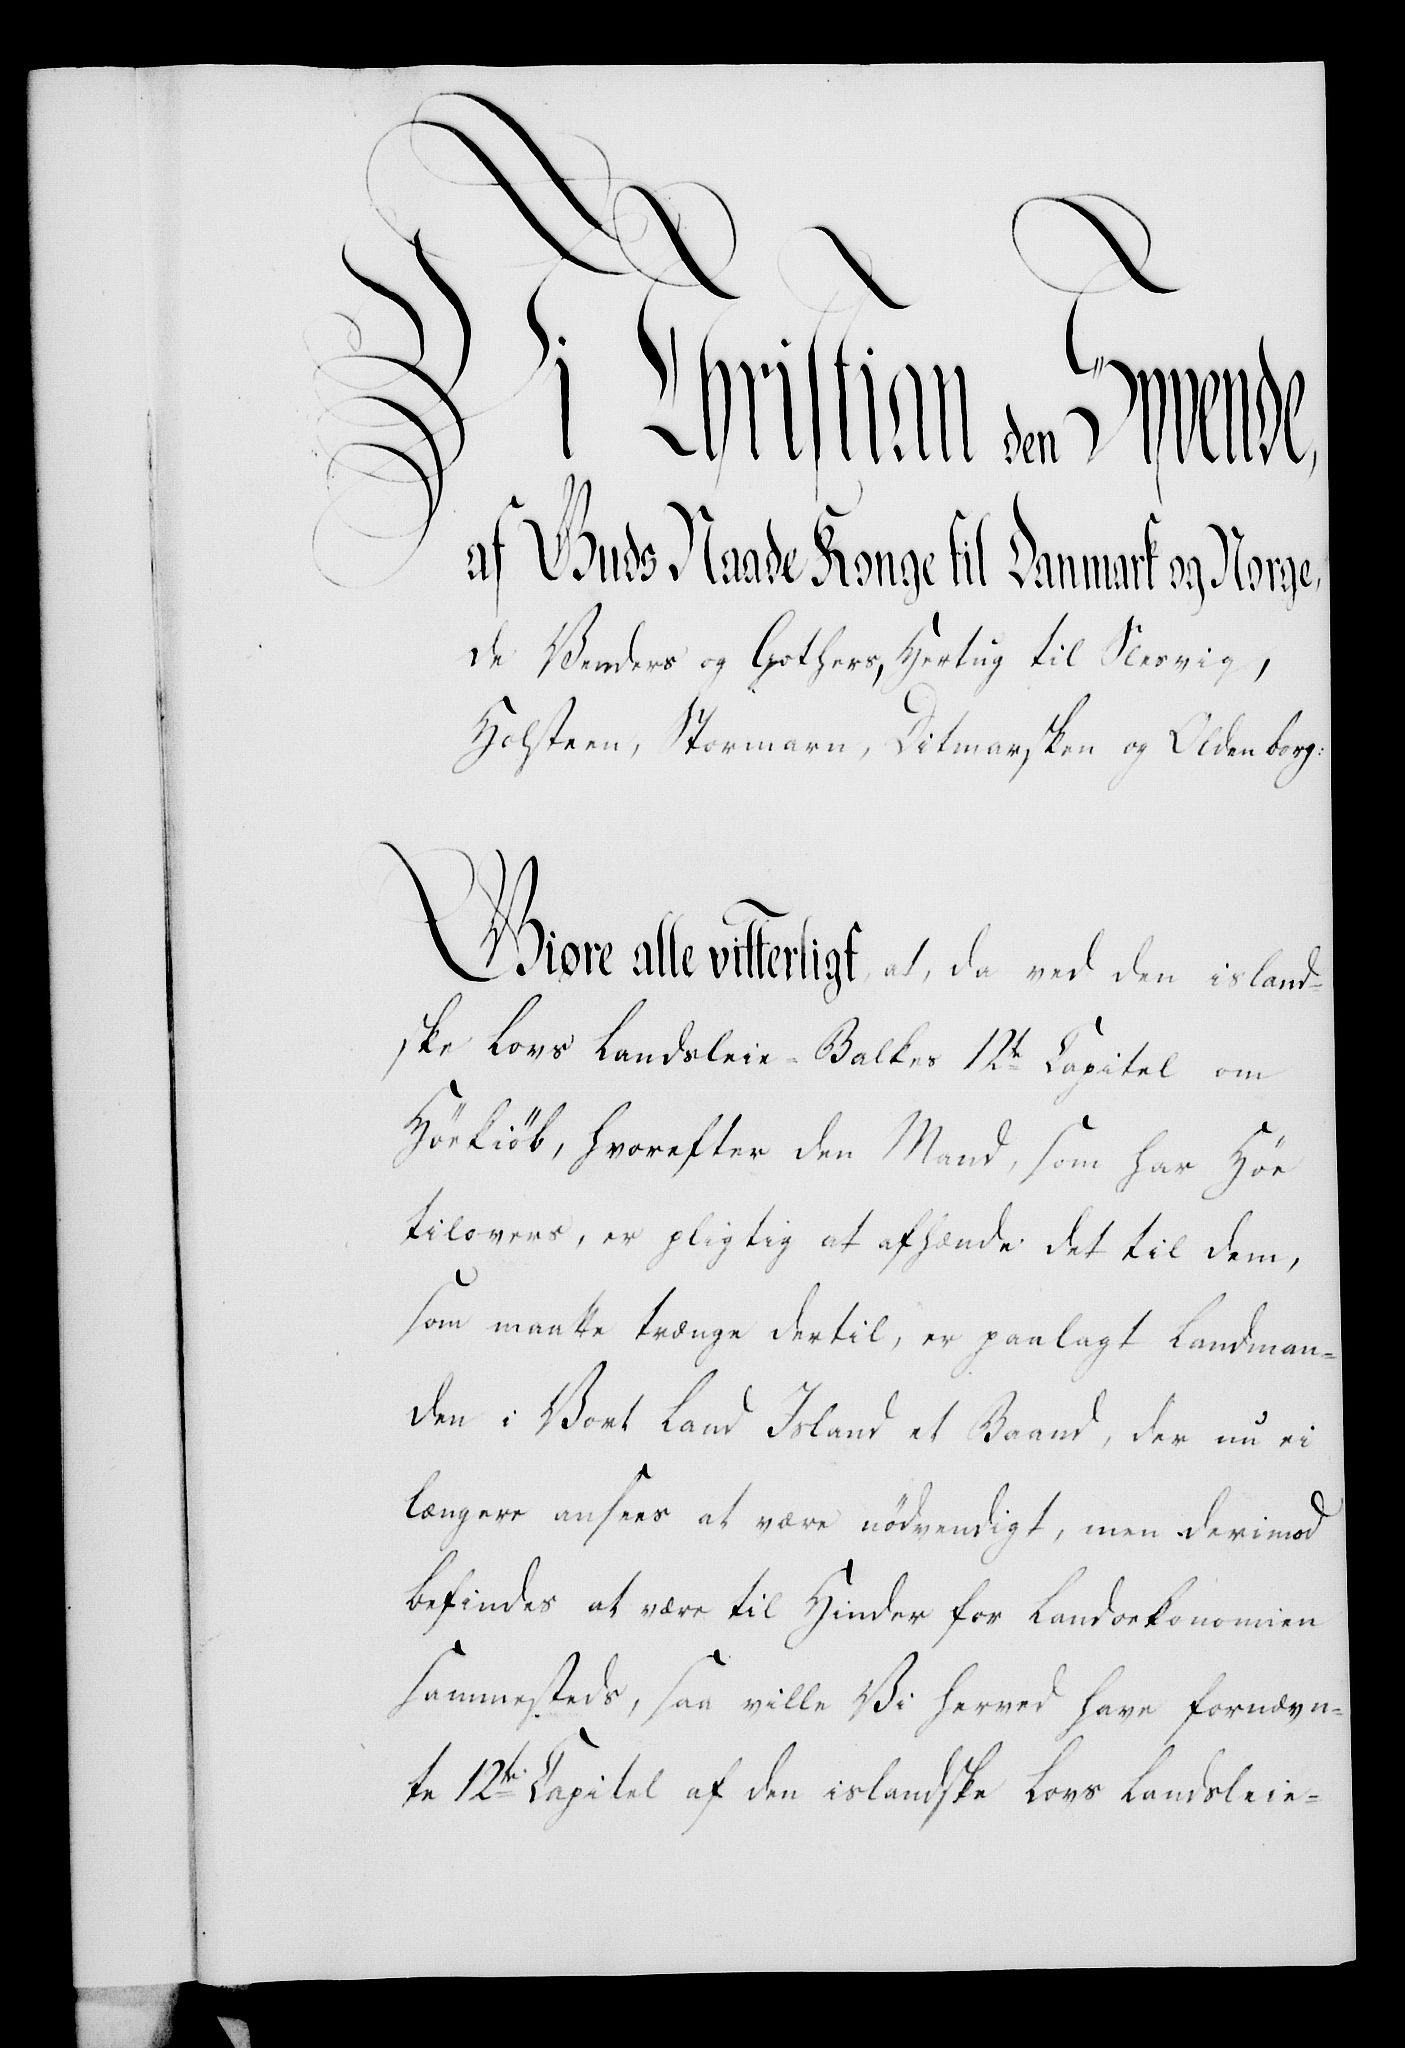 Vi Christian den Syvende,
af Guds Naade Konge til Danmark og Norge,
de Venders og Gothers, Hertug til Slesvig,
Holsteen, Stormarn, Ditmarsken og Oldenborg:
Giøre alle vitterligt, at, da ved den island=
ske Lovs Landsleie-Balkes 12te Capitel om
Höekiöb, hvorefter den Mand, som har Höe
tilovers, er pligtig at afhænde det til dem,
som maatte trænge dertil, er paalagt Landman=
den i Vort Land Island et Baand, der nu ei
længere ansees at være nödvendigt, men derimod
befindes at være til Hinder for Landoekonomien
sammesteds, saa ville Vi herved have fornævn=
te 12te Capitel af den islandske Lovs Landsleie=